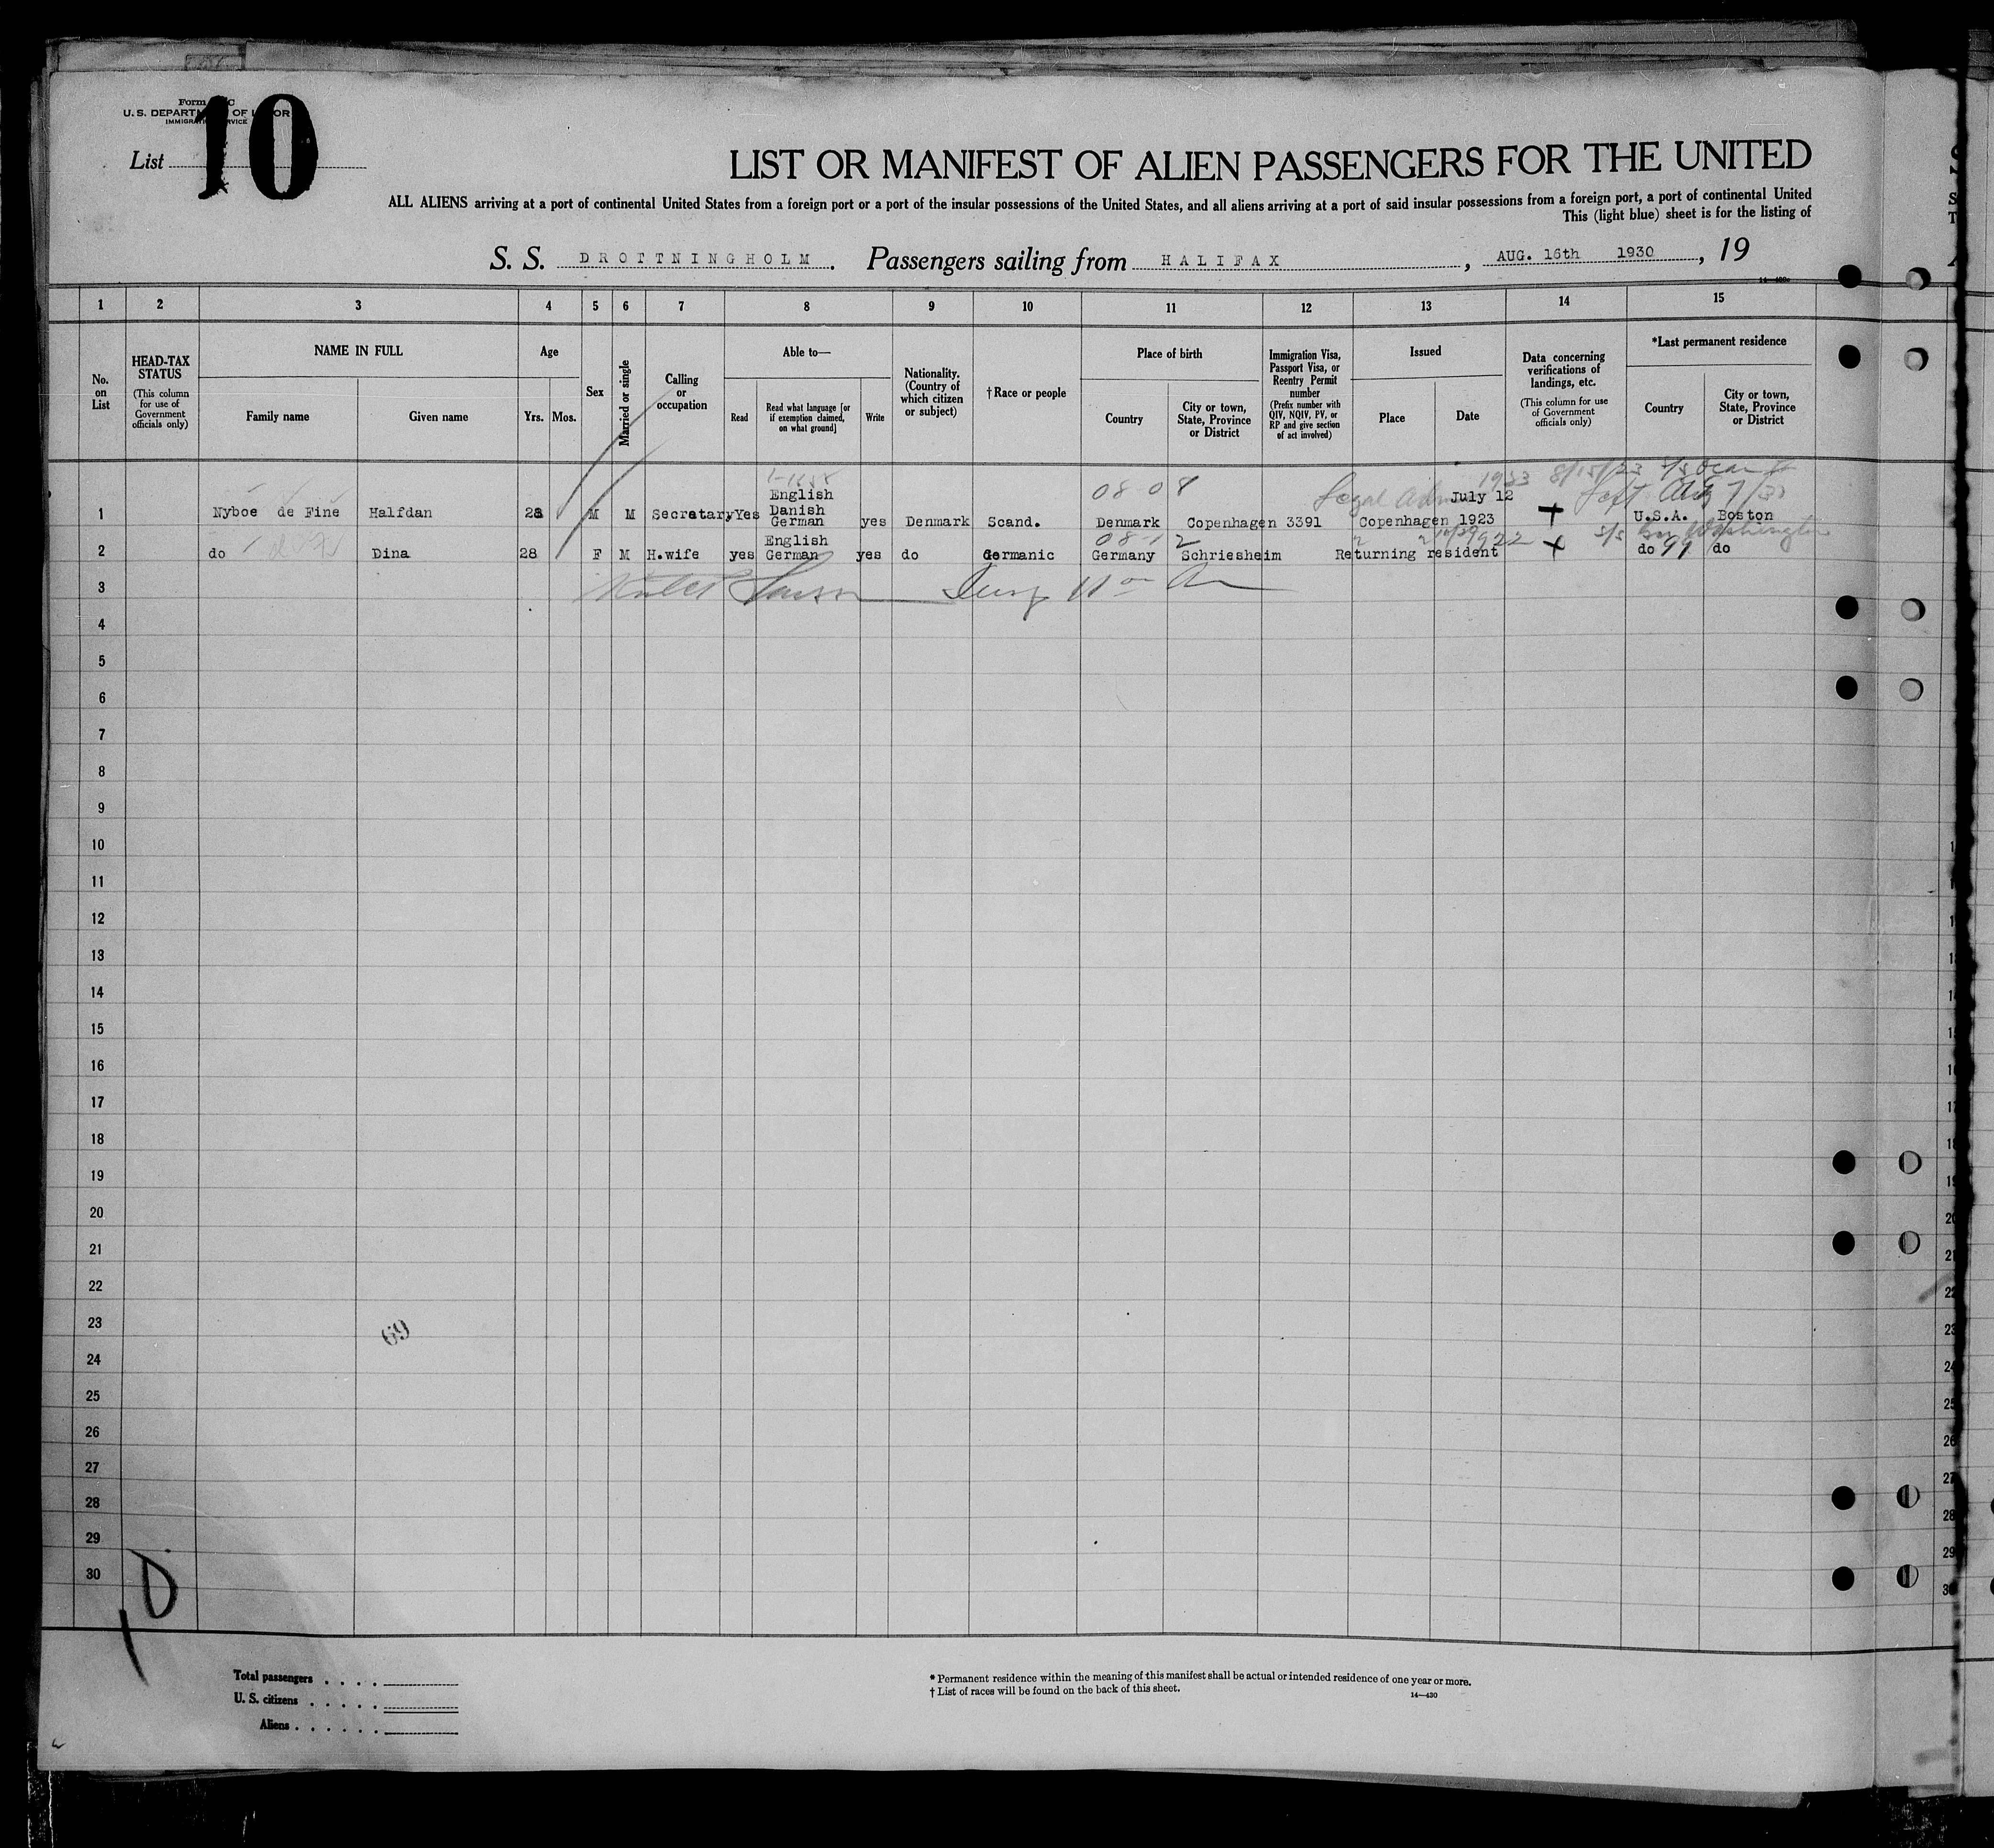 10
U. S. DEPARTMENT OF LABOR
IMMIGRATION SERVICE
List
LIST OR MANIFEST OF ALIEN PASSENGERS FOR THE UNITED
ALL ALIENS arriving at a port of continental United States from a foreign port or a port of the insular possessions of the United States, and all aliens arriving at a port of said insular possessions from a foreign port, a port of continental United
This (light blue) sheet is for the listing of
S. S. DROTTNINGHOLM. Passengers sailing from HALIFAX, AUG. 16th 1930, 19
1 2 3 4 5 6 7 8 9 10 11 12 13 14 15
No. on List
HEAD-TAX STATUS
(This column for use of Government officials only)
NAME IN FULL
Family name
Given name
Age
Yrs.
Mos.
Sex
Married or single
Calling or occupation
Able to—
Read
Read what language [or if exemption claimed, on what ground]
Write
Nationality. (Country of which citizen or subject)
†Race or people
Place of birth
Country
City or town, State, Province or District
Immigration Visa, Passport Visa, or Reentry Permit number
(Prefix number with QIV, NQIV, PV, or RP and give section of act involved)
Issued
Place
Date
Data concerning verifications of landings, etc.
(This column for use of Government officials only)
*Last permanent residence
Country
City or town, State, Province or District
08-08
English July 12
1 Nyboe de Fine Halfdan 28 M M Secretary Yes Danish German yes Denmark Scand. Denmark Copenhagen 3391 Copenhagen 1923 U.S.A. Boston
08-12
English
2 do Dina 28 F M H.wife yes German yes do Germanic Germany Schriesheim Returning resident do 99 do
3
4
5
6
7
8
9
10
11
12
13
14
15
16
17
18
19
20
21
22
23
69
24
25
26
27
28
29
30
Total passengers
U. S. citizens
Aliens
* Permanent residence within the meaning of this manifest shall be actual or intended residence of one year or more.
† List of races will be found on the back of this sheet.
14—430